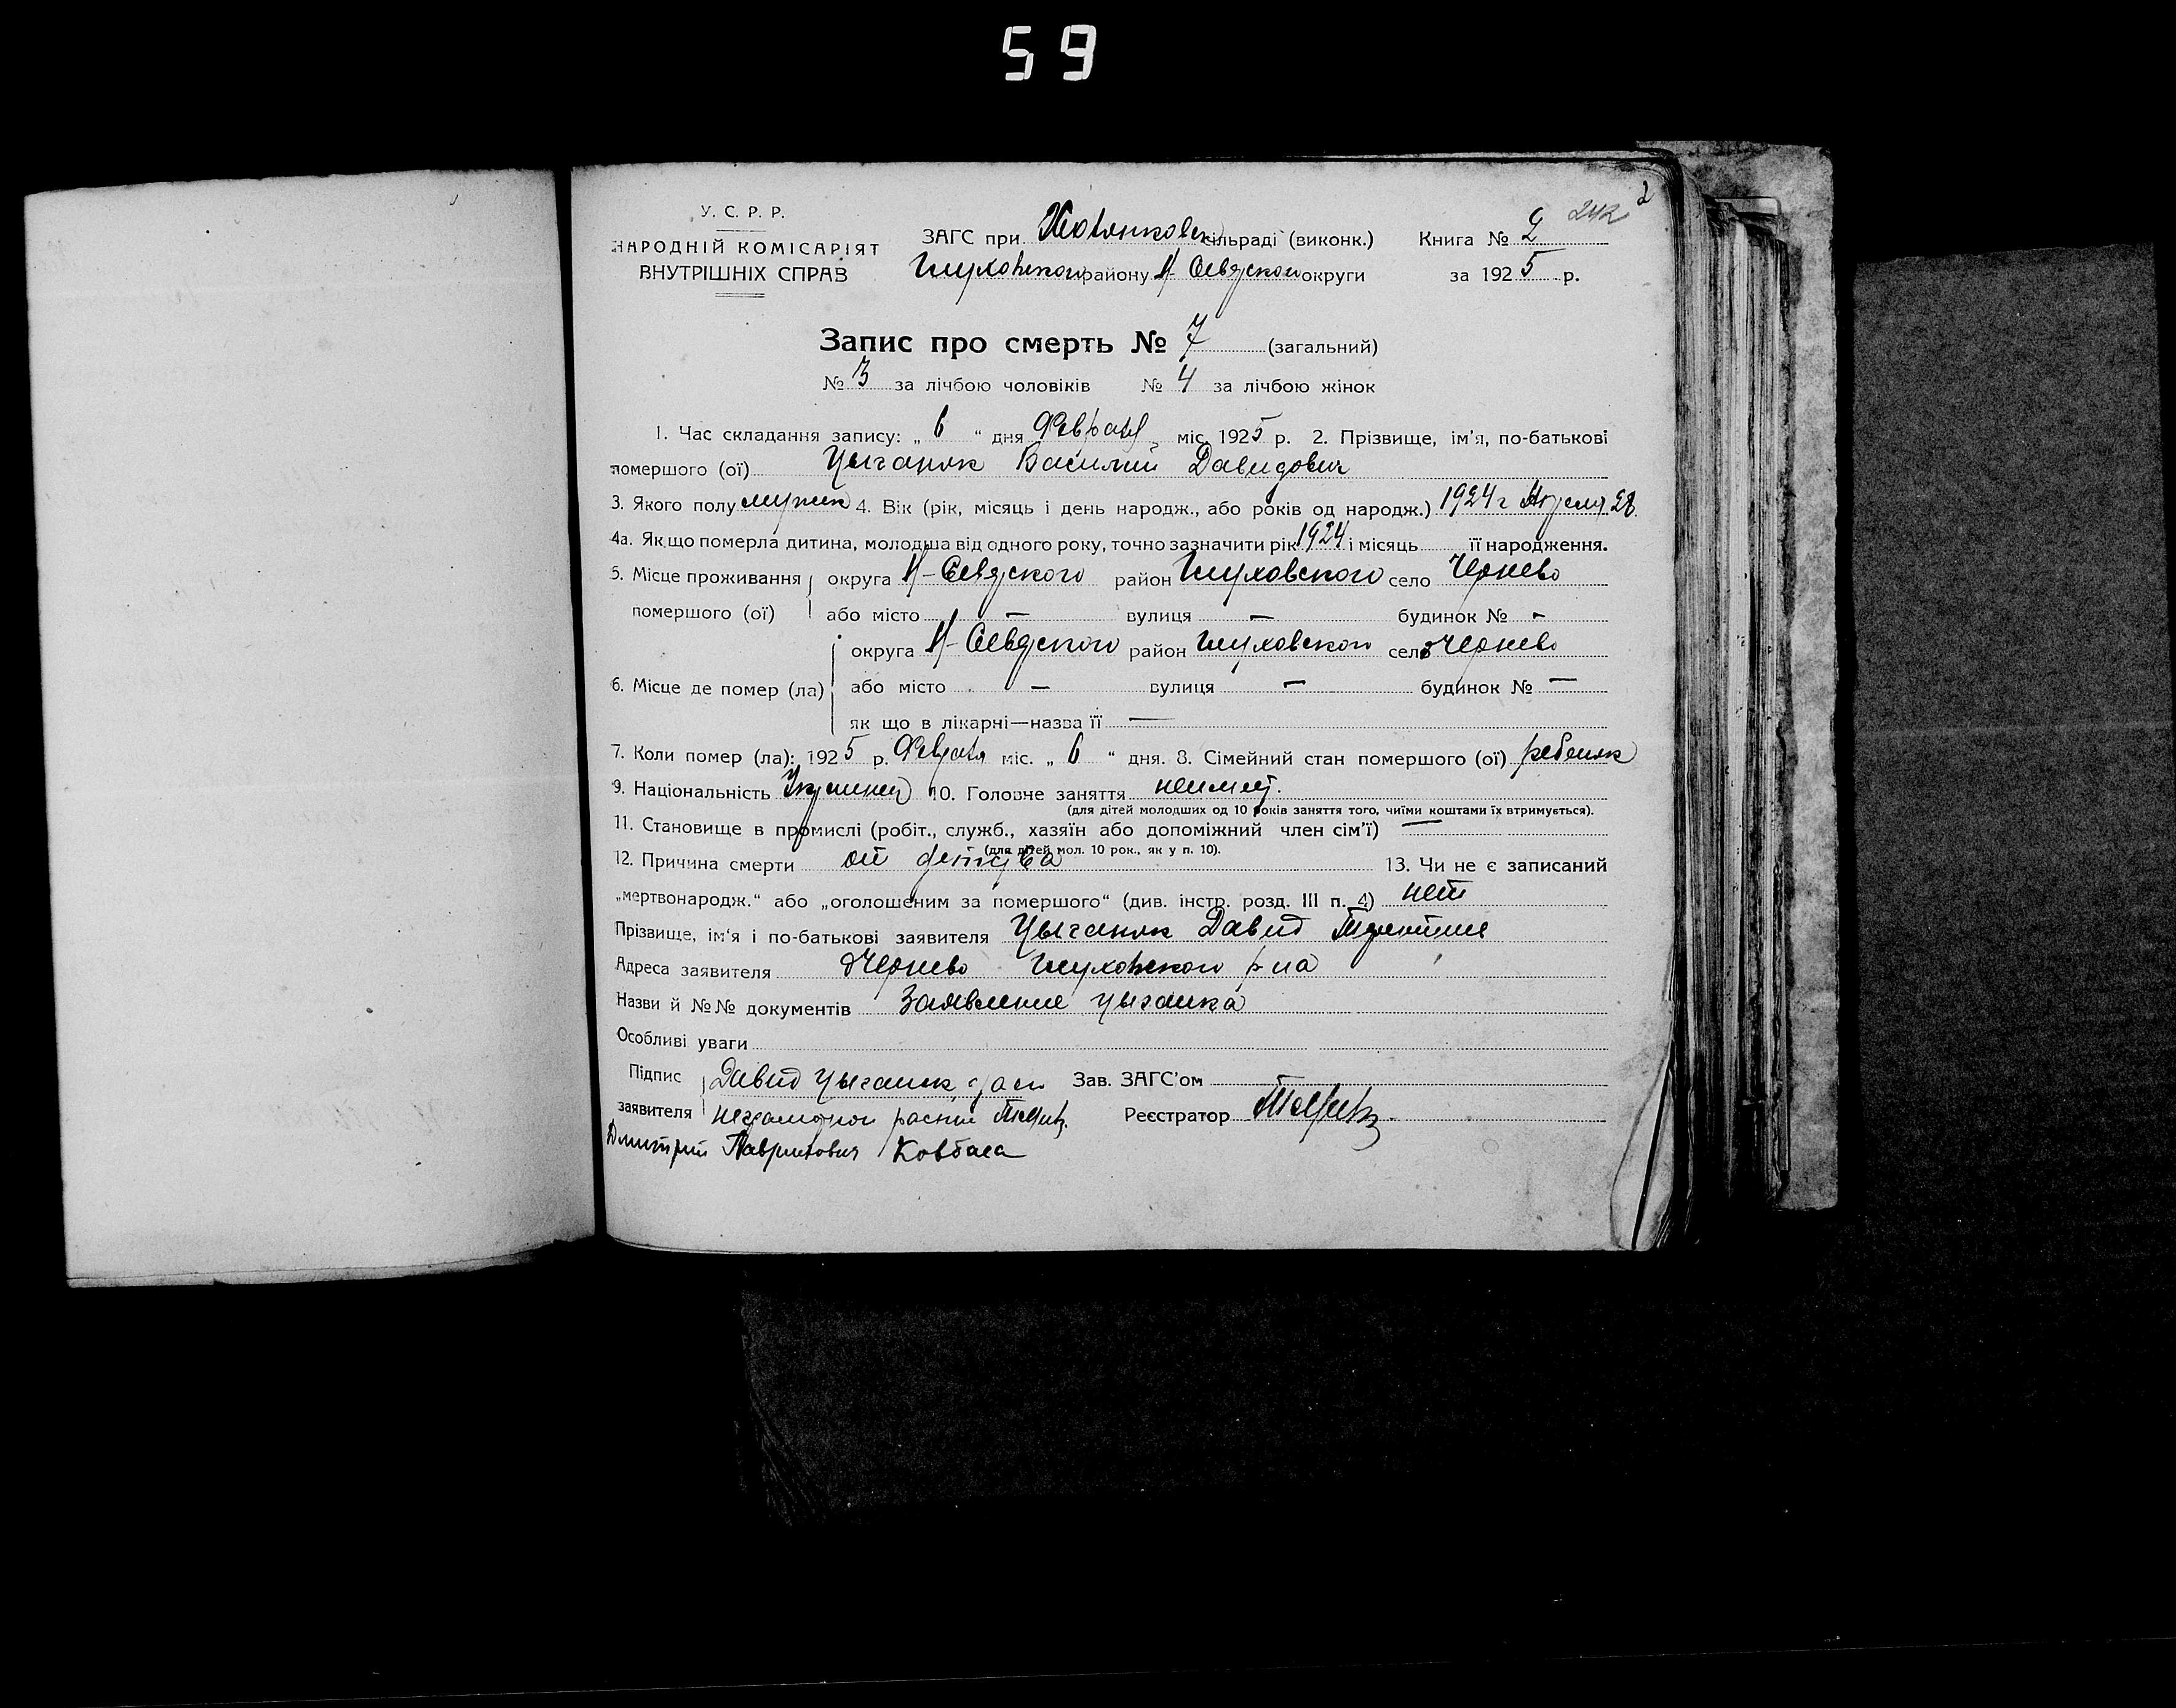 59
2
242
У. С. Р. Р.
НАРОДНІЙ КОМІСАРІЯТ
ВНУТРІШНІХ СПРАВ
ЗАГС при сільраді (виконк.) Книга № 2
Глуховского району Н-Севдского округи за 1925 р.
Запис про смерть № 7 (загальний)
№ 3 за лічбою чоловіків № 4 за лічбою жінок
1. Час складання запису: „ 6 “ дня Февраля міс. 1925 р. 2. Прізвище, ім'я, по-батькові
помершого (ої) Цыганок Василий Давидович
3. Якого полу мужск 4. Вік (рік, місяць і день народж., або років од народж.) 1924 г Апреля 28
4а. Як що померла дитина, молодша від одного року, точно зазначити рік 1924 і місяць її народження.
5. Місце проживання округа Н-Севдского район Глуховского село Чернево
помершого (ої) або місто — вулиця — будинок № -
округа Н-Севдского район Глуховского село Чернево
6. Місце де помер (ла) або місто — вулиця — будинок № —
як що в лікарні—назва її —
7. Коли помер (ла): 1925 р. Февраля міс. „ 6 “ дня. 8. Сімейний стан помершого (ої) ребенок
9. Національність 10. Головне заняття неимеет.
(для дітей молодших од 10 років заняття того, чиїми коштами їх втримується).
11. Становище в промислі (робіт., служб., хазяїн або допоміжний член сім'ї) —
(для дітей мол. 10 рок., як у п. 10).
12. Причина смерти от детства 13. Чи не є записаний
„мертвонародж.“ або „оголошеним за помершого“ (див. інстр. розд. III п. 4) нет
Прізвище, ім'я і по-батькові заявителя Цыганок Давид
Адреса заявителя Чернево Глуховского р-на
Назви й №№ документів Заявление Цыганка
Особливі уваги
Підпис Давид Цыганок, Зав. ЗАГС'ом
заявителя Реєстратор
Дмитрий Ковбаса